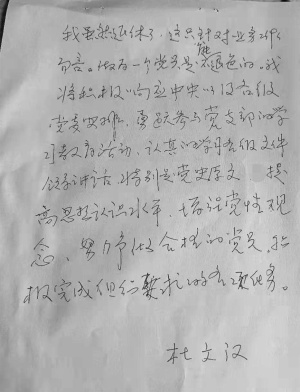 我虽然退休了，这只针对业务工作
而言。做为一个党员是不能退色的。我
将积极响应中央以及各级
党委安排，勇跃参与党支部的学
习教育活动、认真的学习各级文件
领导讲话，特别是党史原文 提
高思想认识水平，增强党性观
念、努力争做合格的党员，积
极完成组织交托的各项任务。
杜文汉